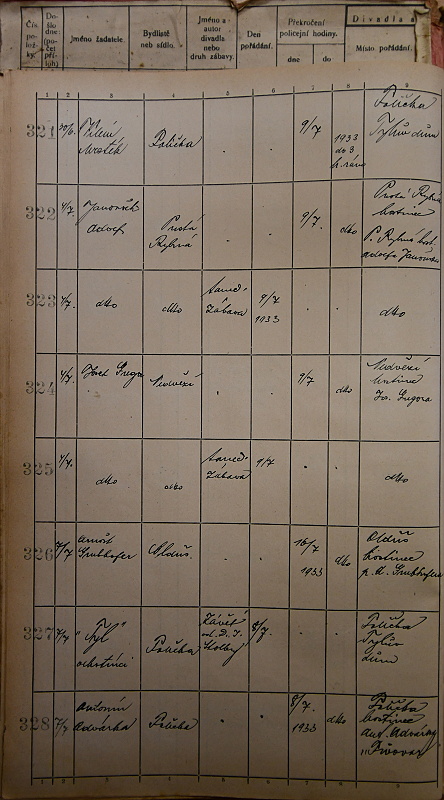 Čís. polož- ky:
Do- šlo dne: (po- čet příl.)
Jméno žadatele.
Bydliště neb sídlo.
Jméno a autor divadla nebo druh zábavy.
Den pořádání.
Překročení policejní hodiny.
dne
do
Divadla a
Místo pořádání.
1 2 3 4 5 6 7 8 9
321 Polička 9/7 1933 do 3 h. ráno Polička Tylův dům
322 4/7. Janoušek Adolf Pustá Rybná 9/7. dto Pustá Rybná hostinec
P. Rybná host. Adolfa Janouška
323 4/7. dto dto taneč. zábava 9/7 1933 dto
324 4/7. Josef Gregor Nedvězí 9/7 dto Nedvězí hostinec Jos. Gregora
325 4/7. dto dto taneč. zábava 9/7 dto
326 7/7 Arnošt Grubhofer Oldriš. 16/7 1933 dto Oldriš hostinec p. A. Grubhofera
327 7/7 "Tyl" ochotníci Polička Závěť 8/7. Polička Tylův dům
328 7/7 Antonín Advárka Polička 8/7. 1933 dto Polička hostinec Ant. Advárky "Pivovar"
1 2 3 4 5 6 7 8 9